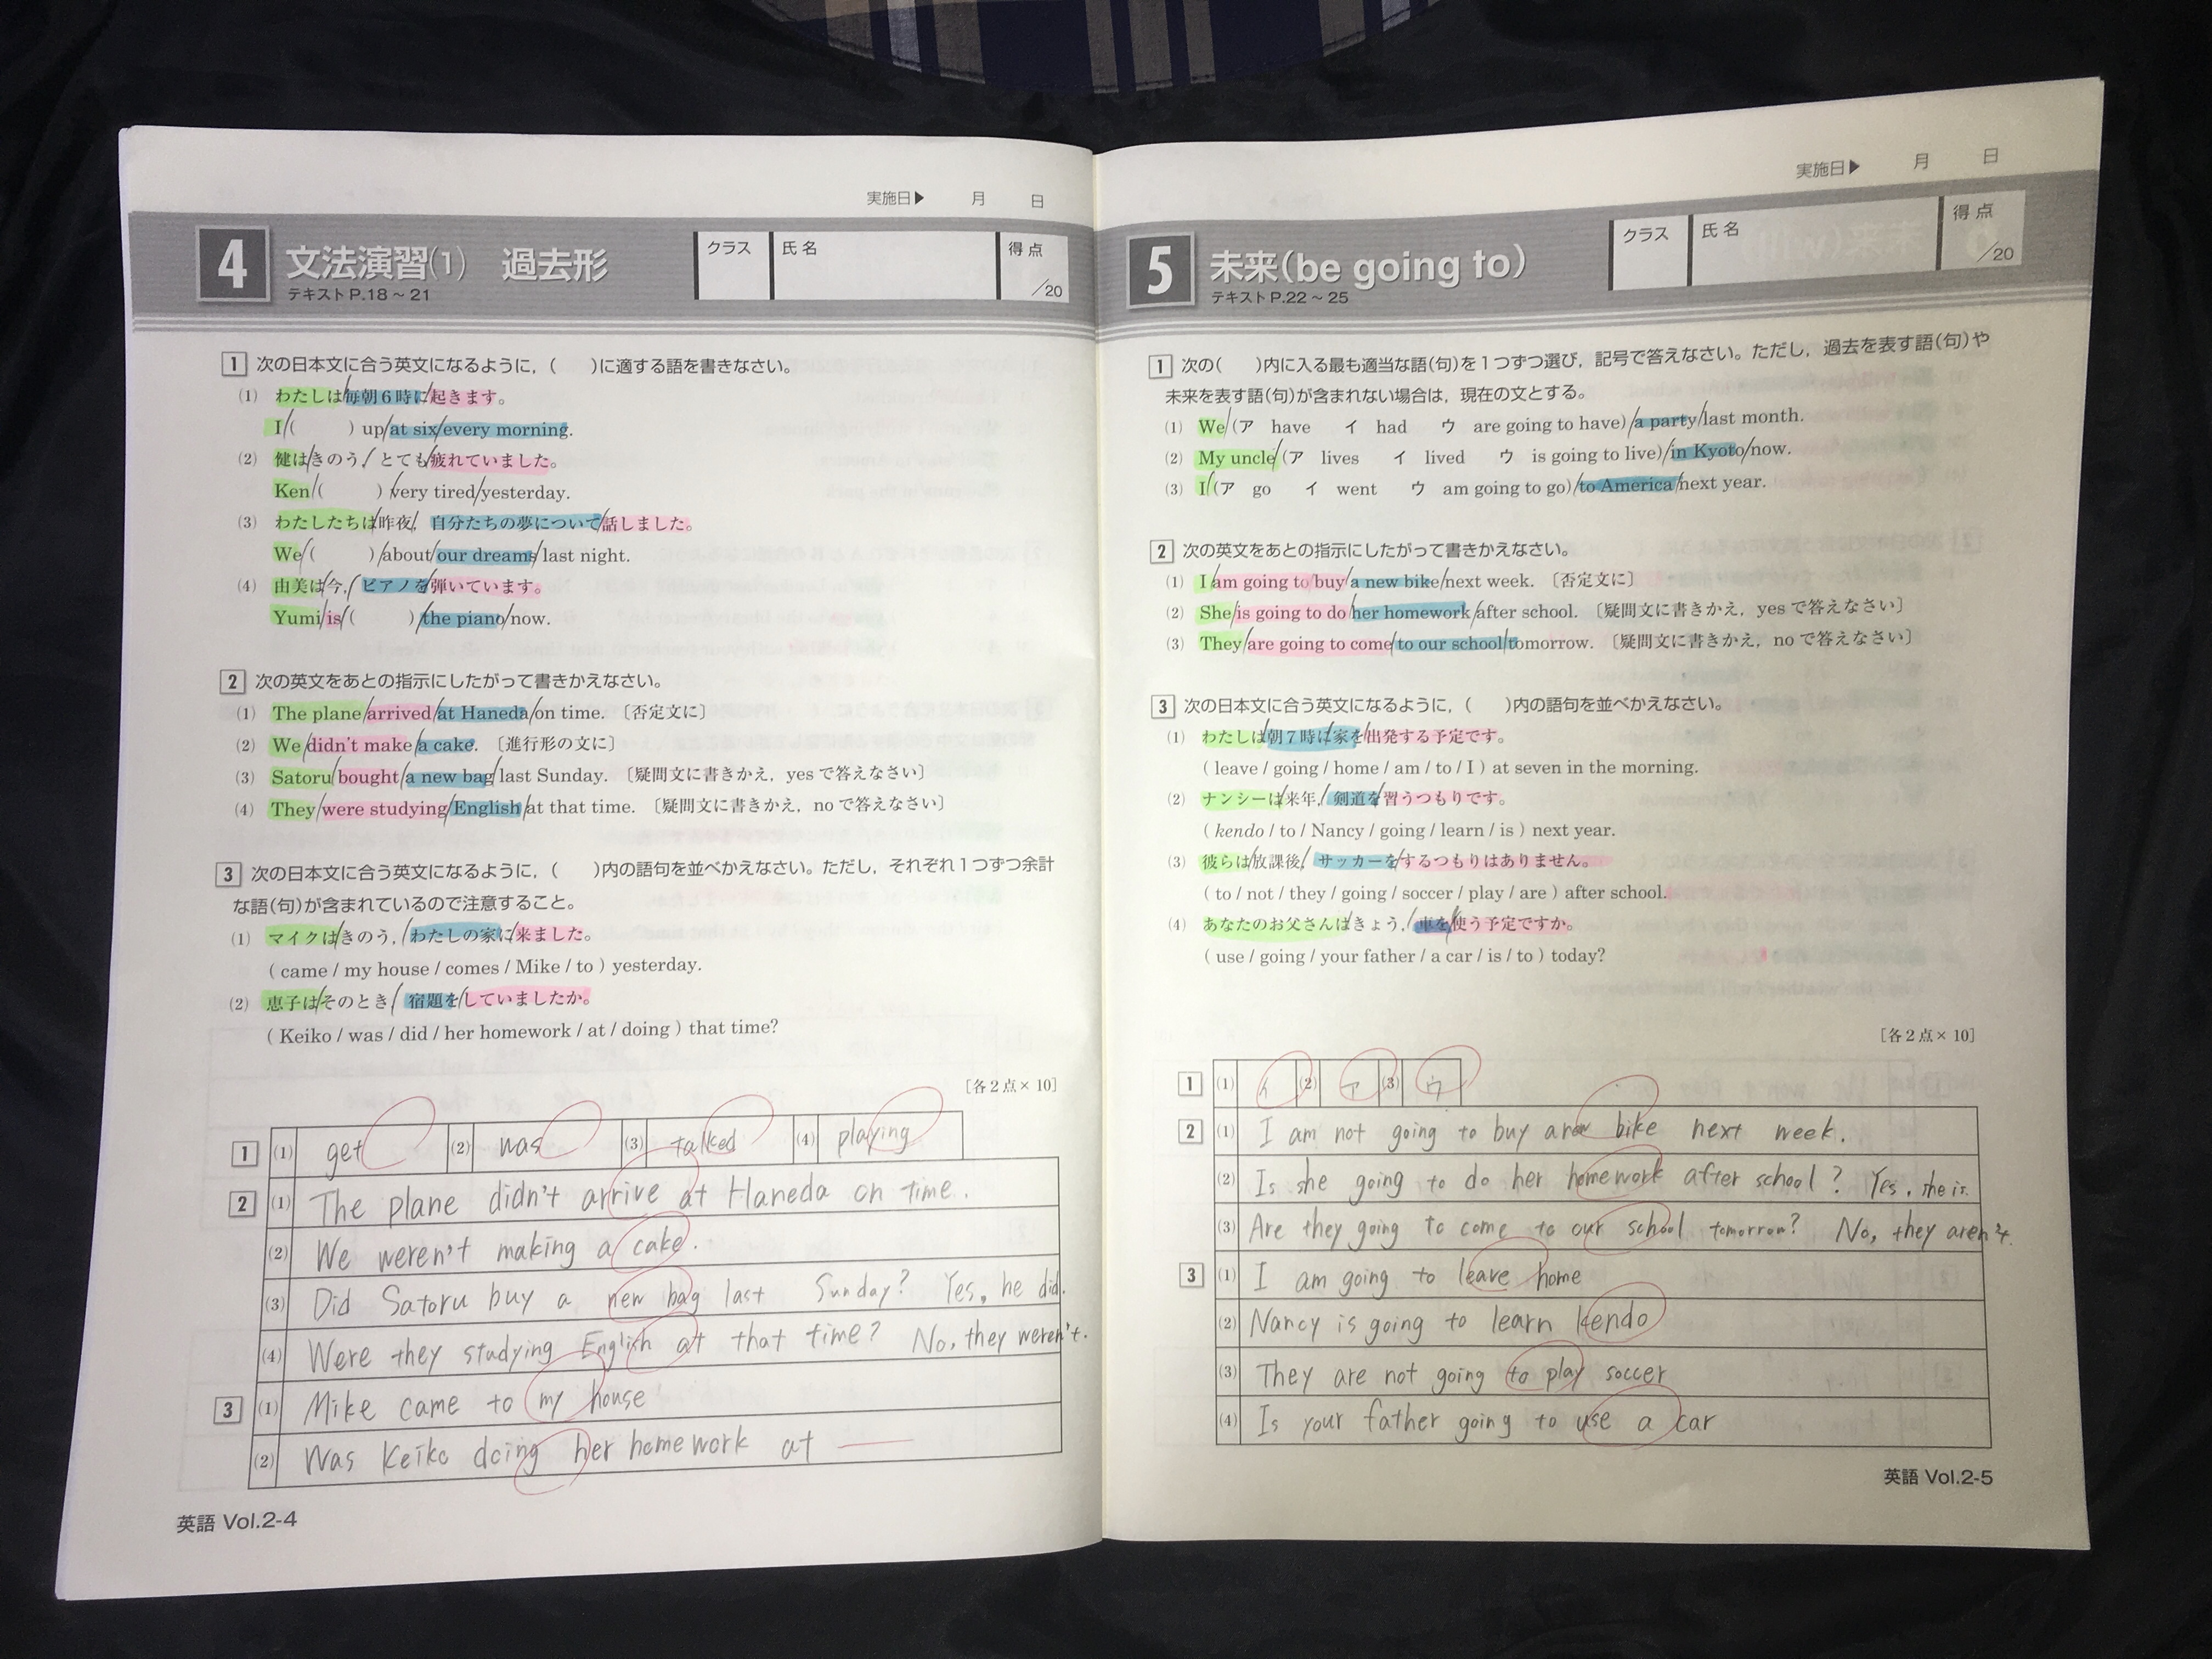 実施日▶ 月 日
4 文法演習(1) 過去形
テキストP.18～21
クラス 氏名 得点 /20
1 次の日本文に合う英文になるように，( )に適する語を書きなさい。
(1) わたしは毎朝6時に起きます。
I ( ) up at six every morning.
(2) 健はきのう，とても疲れていました。
Ken ( ) very tired yesterday.
(3) わたしたちは昨夜，自分たちの夢について話しました。
We ( ) about our dreams last night.
(4) 由美は今，ピアノを弾いています。
Yumi is ( ) the piano now.
2 次の英文をあとの指示にしたがって書きかえなさい。
(1) The plane arrived at Haneda on time. 〔否定文に〕
(2) We didn't make a cake. 〔進行形の文に〕
(3) Satoru bought a new bag last Sunday. 〔疑問文に書きかえ，yesで答えなさい〕
(4) They were studying English at that time. 〔疑問文に書きかえ，noで答えなさい〕
3 次の日本文に合う英文になるように，( )内の語句を並べかえなさい。ただし，それぞれ1つずつ余計
な語(句)が含まれているので注意すること。
(1) マイクはきのう，わたしの家に来ました。
( came / my house / comes / Mike / to ) yesterday.
(2) 恵子はそのとき，宿題をしていましたか。
( Keiko / was / did / her homework / at / doing ) that time?
[各2点×10]
1 (1) get (2) was (3) talked (4) playing
2 (1) The plane didn't arrive at Haneda on time.
(2) We weren't making a cake.
(3) Did Satoru buy a new bag last Sunday? Yes, he did.
(4) Were they studying English at that time? No, they weren't.
3 (1) Mike came to my house
(2) Was Keiko doing her homework at
英語 Vol.2-4
実施日▶ 月 日
5 未来(be going to)
テキストP.22～25
クラス 氏名 得点 /20
1 次の( )内に入る最も適当な語(句)を1つずつ選び，記号で答えなさい。ただし，過去を表す語(句)や
未来を表す語(句)が含まれない場合は，現在の文とする。
(1) We (ア have イ had ウ are going to have) a party last month.
(2) My uncle (ア lives イ lived ウ is going to live) in Kyoto now.
(3) I (ア go イ went ウ am going to go) to America next year.
2 次の英文をあとの指示にしたがって書きかえなさい。
(1) I am going to buy a new bike next week. 〔否定文に〕
(2) She is going to do her homework after school. 〔疑問文に書きかえ，yesで答えなさい〕
(3) They are going to come to our school tomorrow. 〔疑問文に書きかえ，noで答えなさい〕
3 次の日本文に合う英文になるように，( )内の語句を並べかえなさい。
(1) わたしは朝7時に家を出発する予定です。
( leave / going / home / am / to / I ) at seven in the morning.
(2) ナンシーは来年，剣道を習うつもりです。
( kendo / to / Nancy / going / learn / is ) next year.
(3) 彼らは放課後，サッカーをするつもりはありません。
( to / not / they / going / soccer / play / are ) after school.
(4) あなたのお父さんはきょう，車を使う予定ですか。
( use / going / your father / a car / is / to ) today?
[各2点×10]
1 (1) イ (2) ア (3) ウ
2 (1) I am not going to buy a new bike next week.
(2) Is she going to do her homework after school? Yes, she is.
(3) Are they going to come to our school tomorrow? No, they aren't.
3 (1) I am going to leave home
(2) Nancy is going to learn kendo
(3) They are not going to play soccer
(4) Is your father going to use a car
英語 Vol.2-5